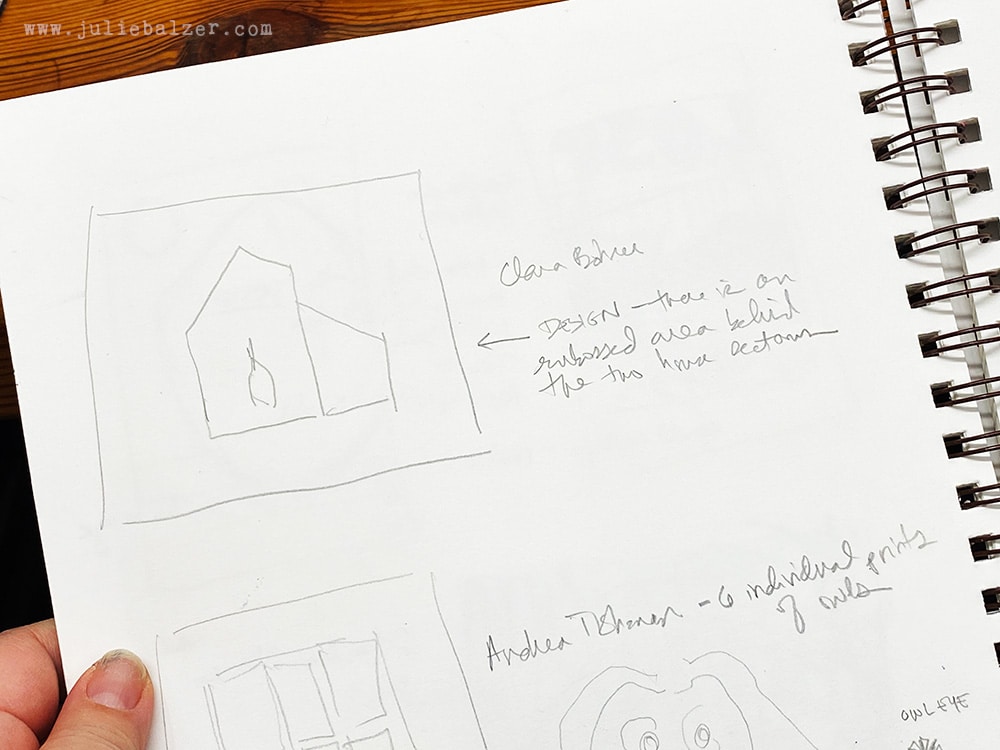 www.juliebalzer.com
Clara
DESIGN - there is an
embossed area behind
the two house sections
Andrea - 6 individual prints
of owls
OWL EYE